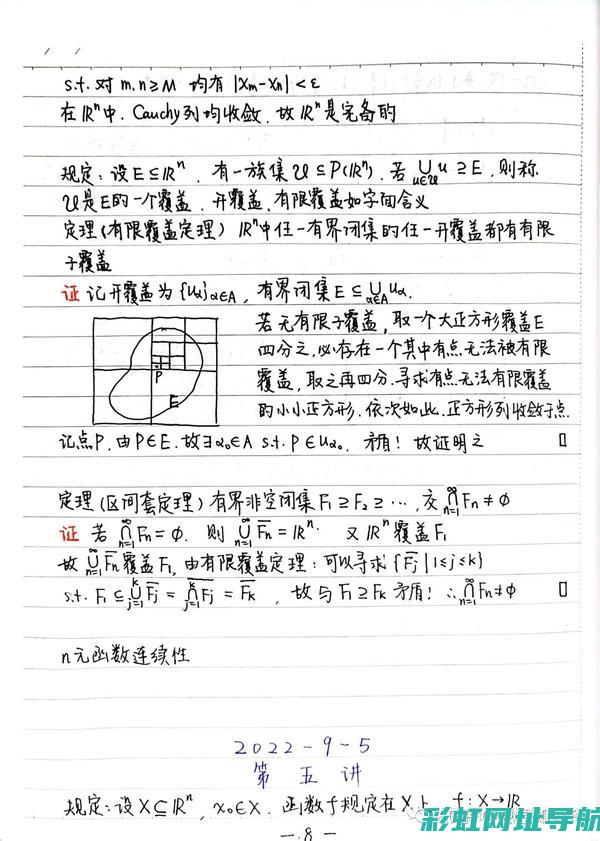 s.t. 对 m.n≥M 均有 |xm-xn|<ε
在 ℝⁿ中. Cauchy列均收敛. 故 ℝⁿ是完备的
规定: 设E⊆ℝⁿ. 有一族集 𝒰⊆P(ℝⁿ). 若 ∪_{u∈𝒰} u ⊇E, 则称
𝒰是E的一个覆盖. 开覆盖. 有限覆盖如字面含义
定理(有限覆盖定理) ℝⁿ中任一有界闭集的任一开覆盖都有有限
子覆盖
证 记开覆盖为 {Uα}α∈A, 有界闭集E⊆∪_{α∈A}Uα.
若无有限子覆盖, 取一个大正方形覆盖E
四分之, 必存在一个其中有点无法被有限
覆盖, 取之再四分. 寻求有点无法有限覆盖
的小小正方形. 依次如此. 正方形列收敛于点.
P
E
记点P. 由P∈E. 故∃α₀∈A s.t. P∈Uα₀. 矛盾! 故证明之 □
定理(区间套定理) 有界非空闭集F₁⊇F₂⊇…, 交 ∩_{n=1}^∞ Fn≠∅
证 若 ∩_{n=1}^∞ Fn=∅. 则 ∪_{n=1}^∞ F̅n=ℝⁿ. 又ℝⁿ覆盖F₁
故 ∪_{n=1}^∞ F̅n覆盖F₁, 由有限覆盖定理: 可以寻求{F̅j|1≤j≤k}
s.t. F₁⊆∪_{j=1}^k F̅j = \overline{∩_{j=1}^k Fj} = F̅k, 故与F₁⊇Fk矛盾! ∴∩_{n=1}^∞ Fn≠∅ □
n元函数连续性
2022-9-5
第五讲
规定: 设X⊆ℝⁿ, x₀∈X. 函数f规定在X上 f: X→ℝ
彩虹网址导航
— 8 —